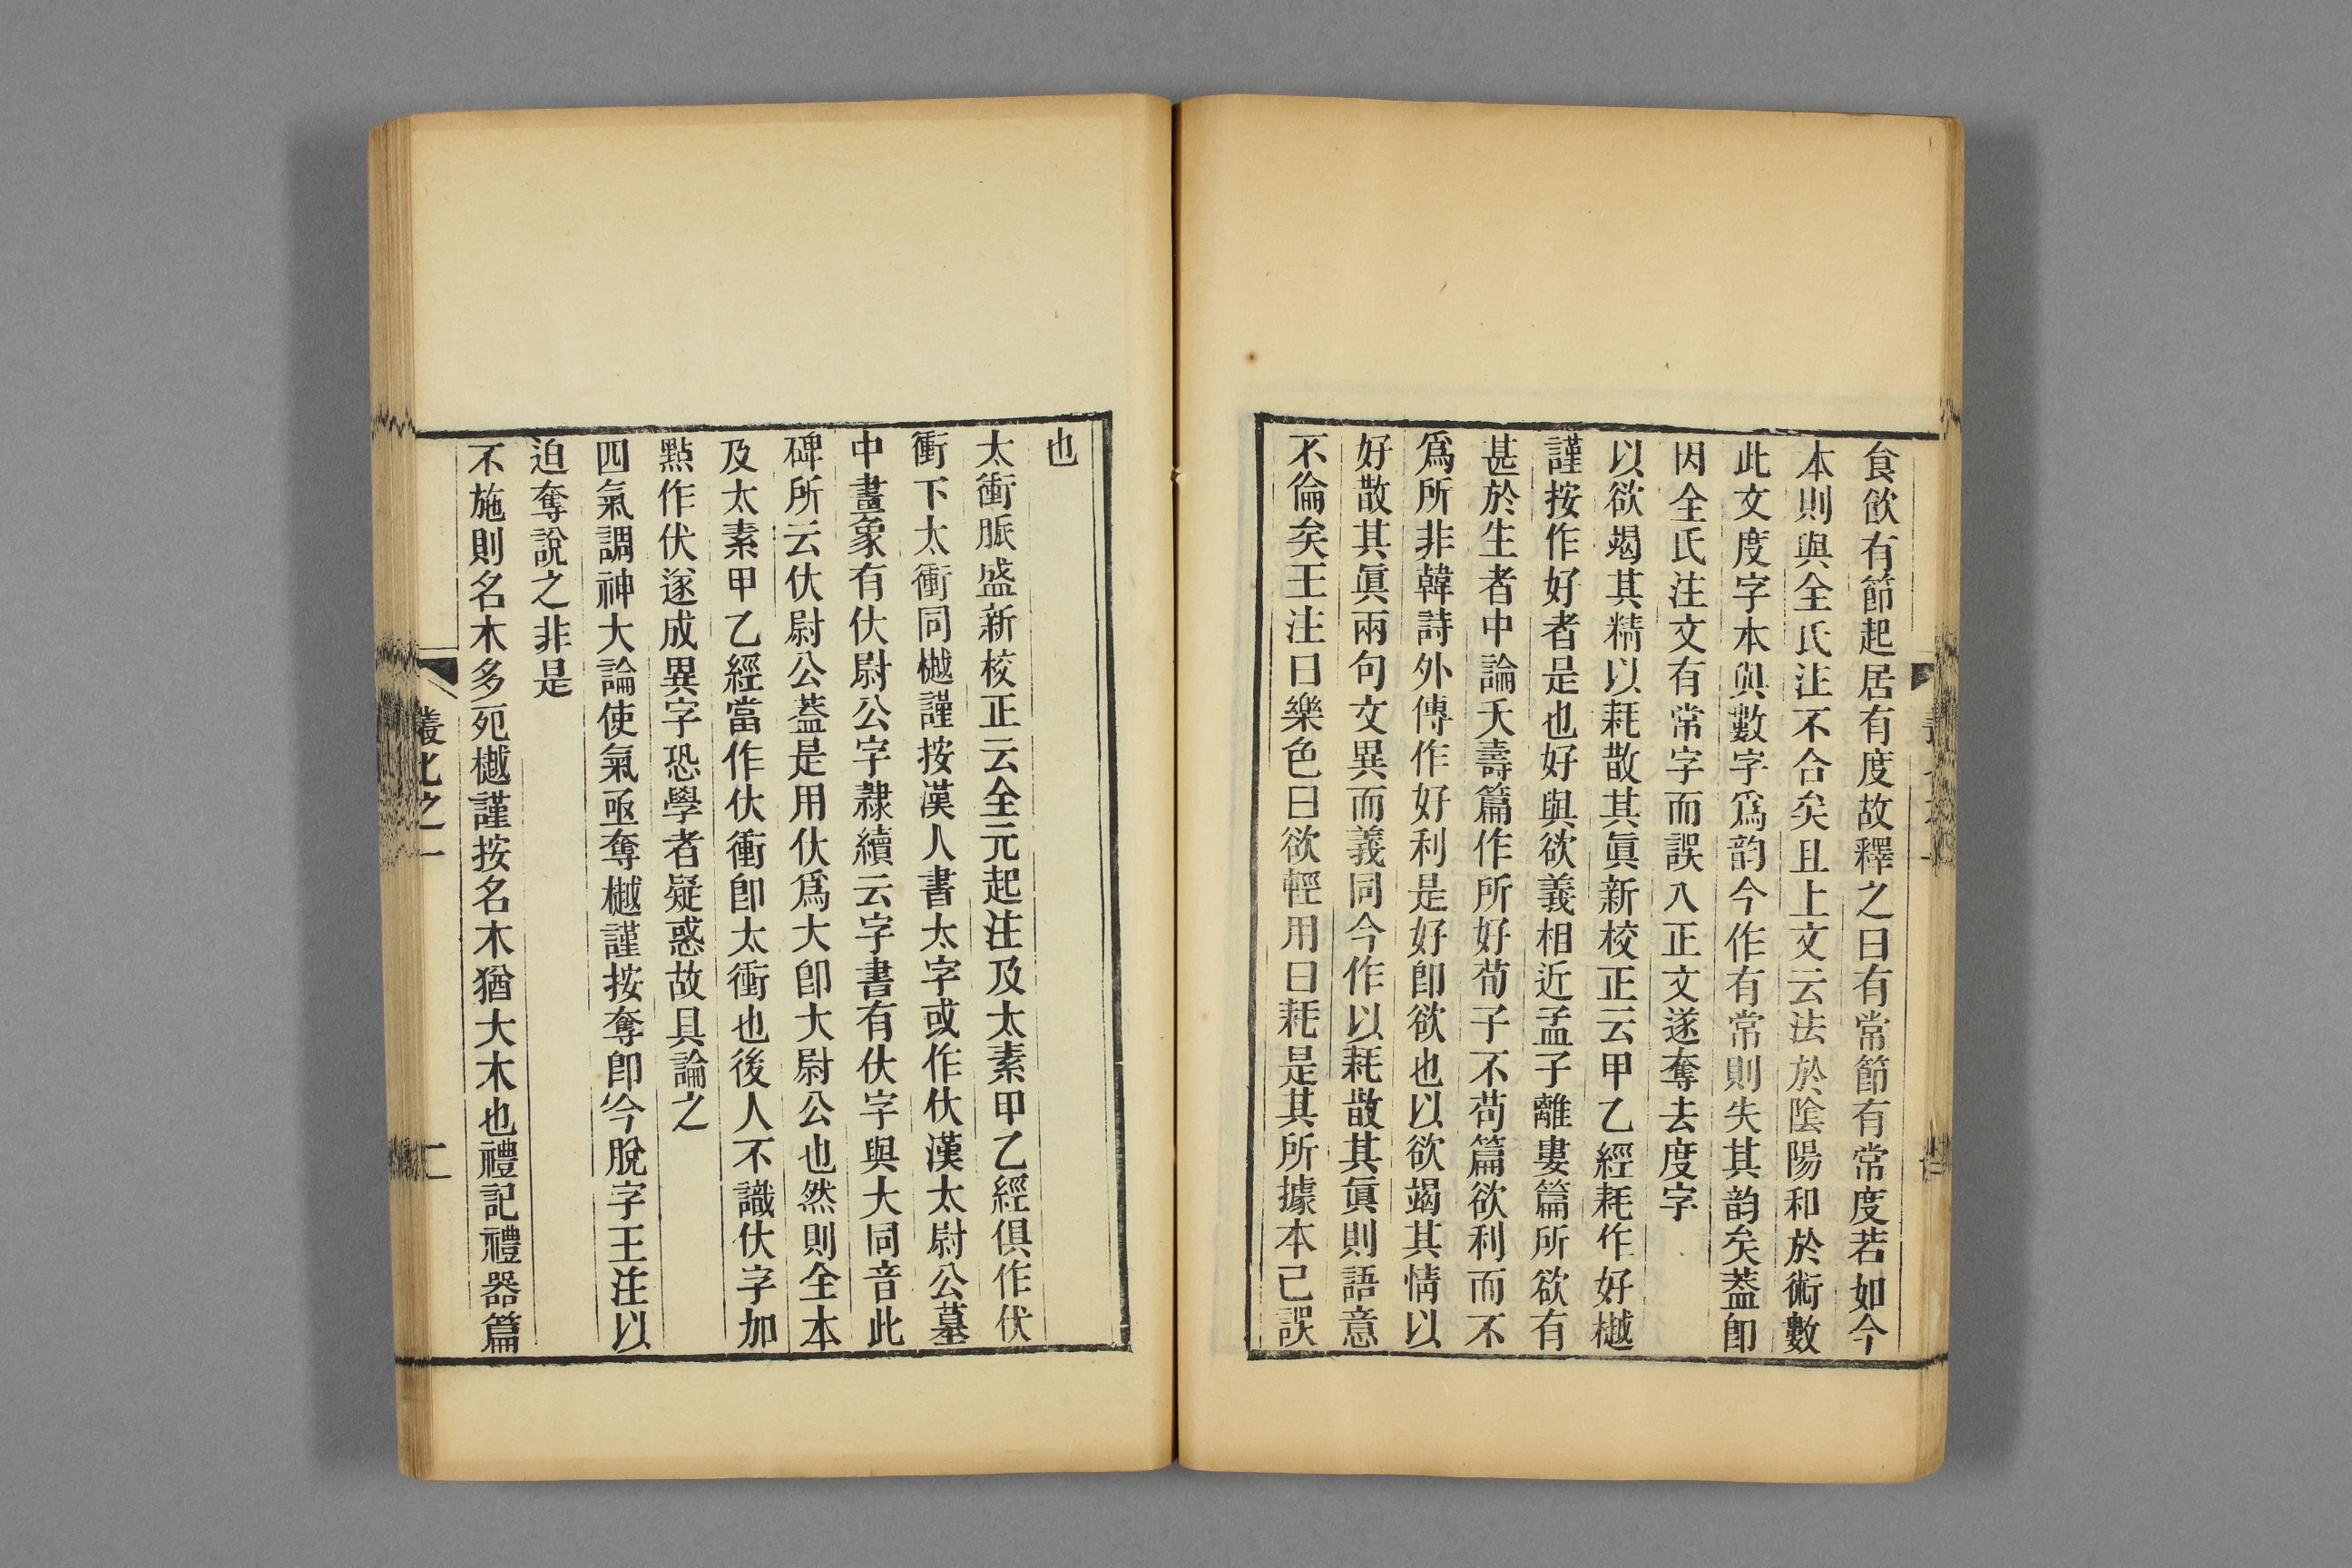 食飮有節起居有度故釋之曰有常節有常度若如今
本則與全氏注不合矣且上文云法於陰陽和於術數
此文度字本與數字爲韵今作有常則失其韵矣葢卽
因全氏注文有常字而誤入正文遂奪去度字
以欲竭其精以耗散其眞新校正云甲乙經耗作好樾
謹按作好者是也好與欲義相近孟子離婁篇所欲有
甚於生者中論夭壽篇作所好荀子不苟篇欲利而不
爲所非韓詩外傳作好利是好卽欲也以欲竭其情以
好散其眞兩句文異而義同今作以耗散其眞則語意
不倫矣王注曰樂色曰欲輕用曰耗是其所據本已誤
也
太衝脈盛新校正云全元起注及太素甲乙經俱作伏
衝下太衝同樾謹按漢人書太字或作伏漢太尉公墓
中畫象有伏尉公字隸續云字書有伏字與大同音此
碑所云伏尉公葢是用伏爲大卽大尉公也然則全本
及太素甲乙經當作伏衝卽太衝也後人不識伏字加
點作伏遂成異字恐學者疑惑故具論之
四氣調神大論使氣亟奪樾謹按奪卽今脫字王注以
迫奪說之非是
不施則名木多死樾謹按名木猶大木也禮記禮器篇
叢七之一
二